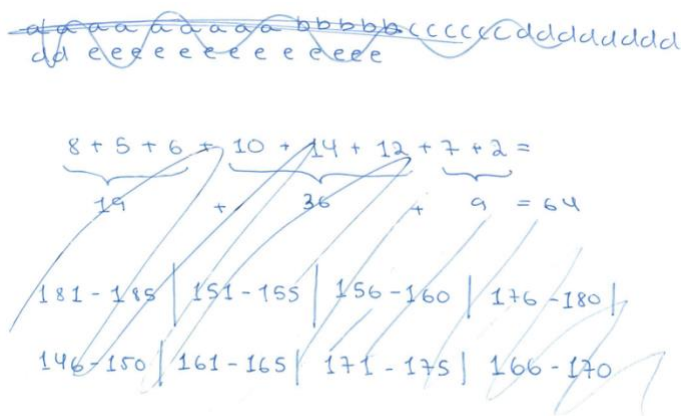 a a a a a a a a a b b b b b c c c c c c d d d d d d d d
d d e e e e e e e e e e e e e
8 + 5 + 6 + 10 + 14 + 12 + 7 + 2 =
19 + 36 + 9 = 64
181 - 185 | 151 - 155 | 156 - 160 | 176 - 180 |
146 - 150 | 161 - 165 | 171 - 175 | 166 - 170